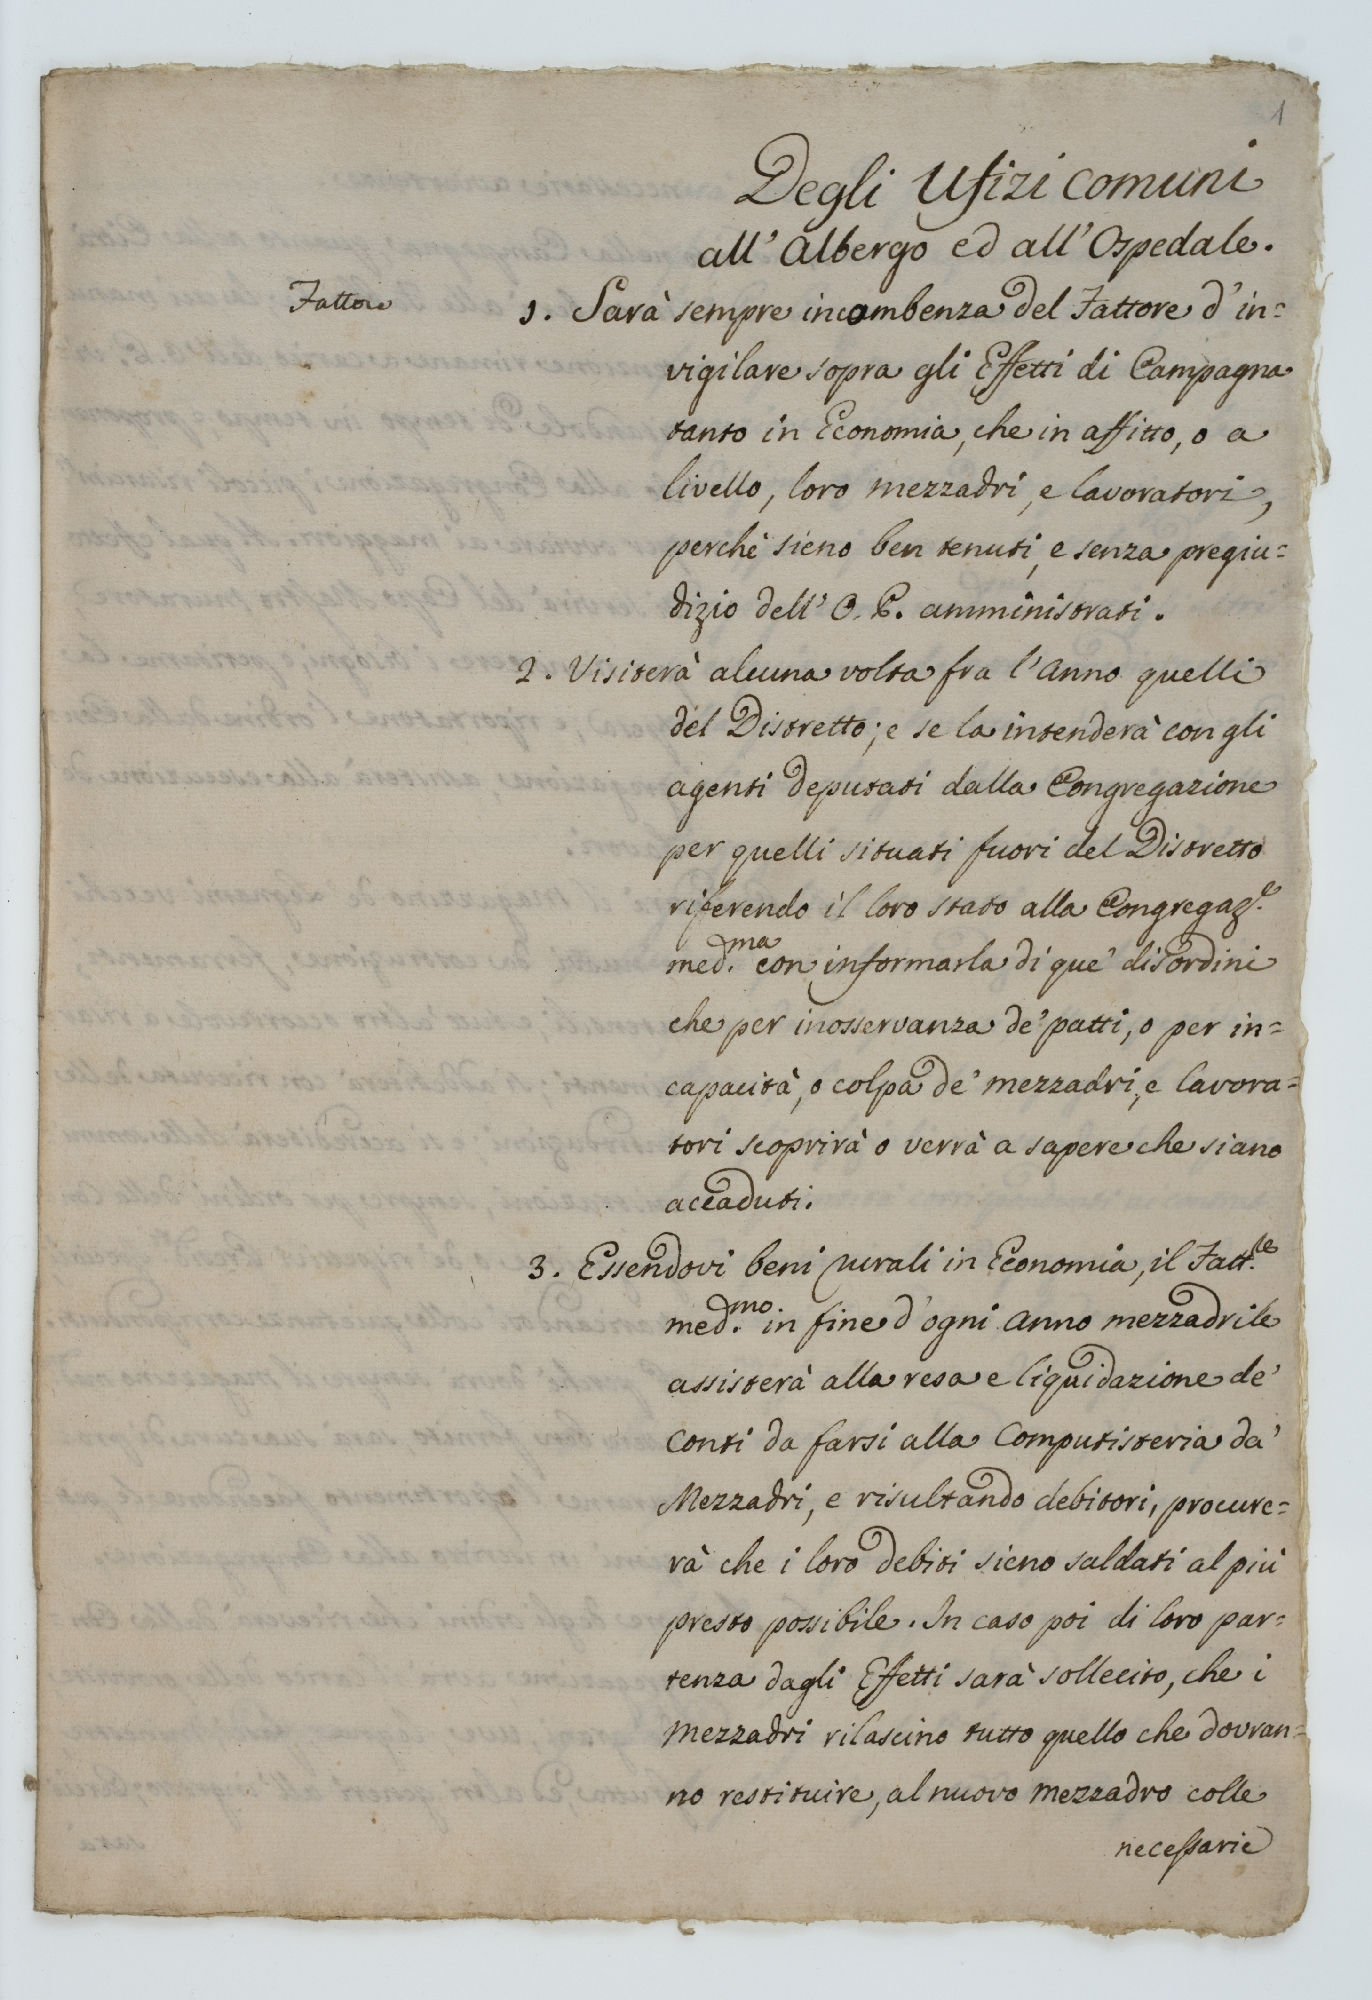 1
Degli Ufizi comuni
all' Albergo ed all' Ospedale.
Fattore
1. Sarà sempre incombenza del Fattore d' in=
vigilare sopra gli Effetti di Campagna
tanto in Economia, che in affitto, o a
livello, loro mezzadri, e lavoratori,
perchè sieno ben tenuti, e senza pregiu=
dizio dell' O. P. amministrati.
2. Visiterà alcuna volta fra l' Anno quelli
del Distretto; e se la intenderà con gli
agenti deputati dalla Congregazione
per quelli situati fuori del Distretto
riferendo il loro stato alla Congregaz.e
med.ma con informarla di que' disordini
che per inosservanza de' patti, o per in=
capacità, o colpa de' mezzadri, e lavora=
tori scoprirà o verrà a sapere che siano
accaduti.
3. Essendovi beni rurali in Economia, il Fatt.re
med.mo in fine d' ogni Anno mezzadrile
assisterà alla resa e liquidazione de'
Conti da farsi alla Computisteria da'
Mezzadri, e risultando debitori, procure=
rà che i loro debiti sieno saldati al più
presto possibile. In caso poi di loro par=
tenza dagli Effetti sarà sollecito, che i
Mezzadri rilascino tutto quello che dovran=
no restituire, al nuovo mezzadro colle
necessarie